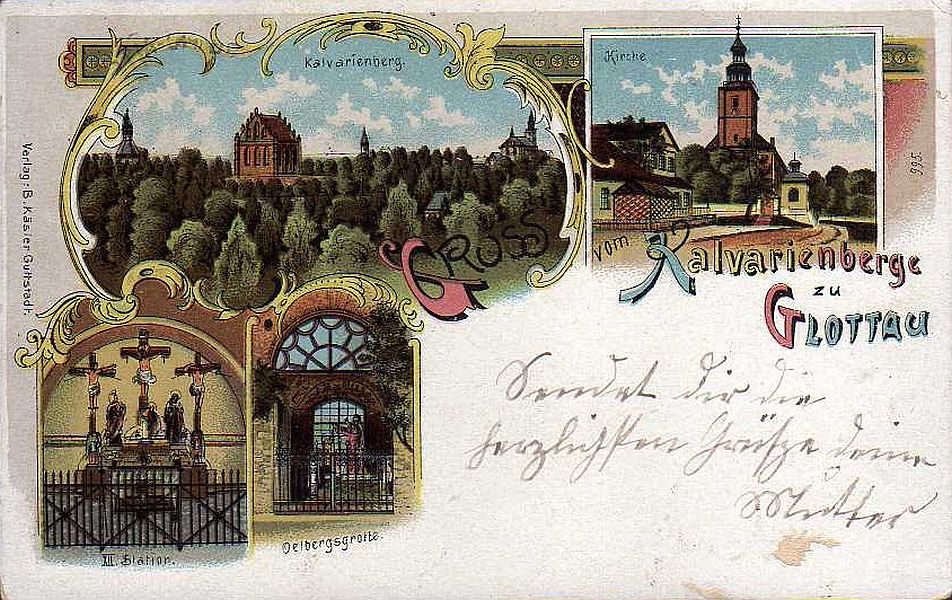 Kalvarienberg.
Kirche
995.
Verlag: B. Käsler Guttstadt.
GRUSS
vom Kalvarienberge
zu
GLOTTAU
Sendet dir die
herzlichsten Grüße deine
Mutter
XII. Station.
Oelbergsgrotte.